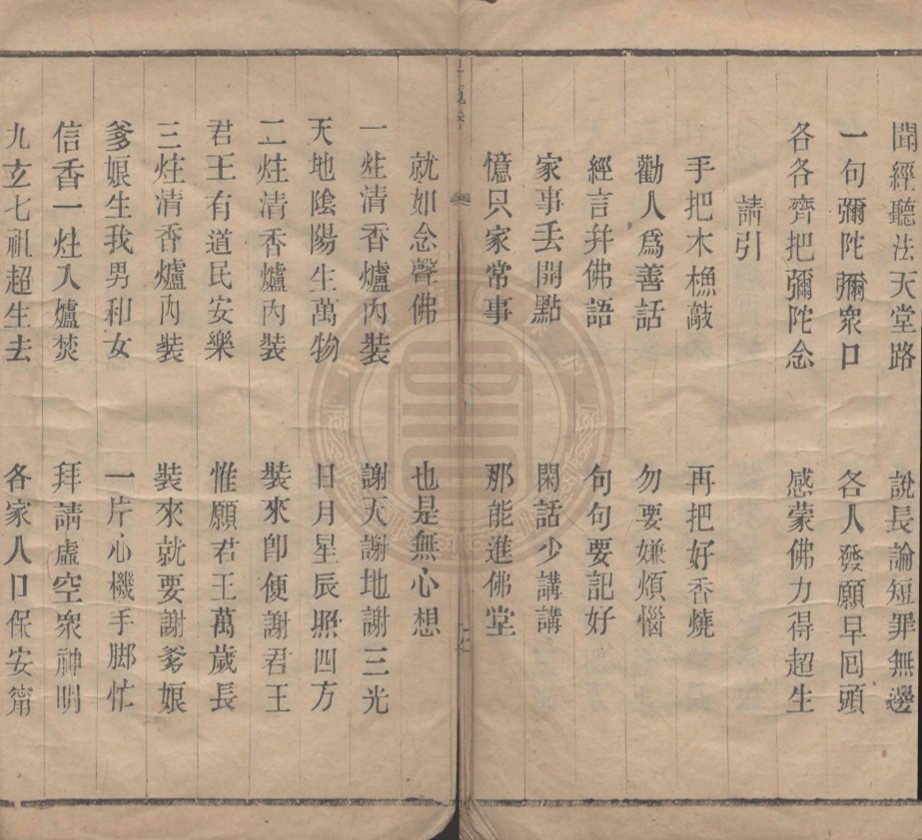 聞經聽法天堂路 說長論短罪無邊
一句彌陀彌衆口 各人發願早回頭
各各齊把彌陀念 感蒙佛力得超生
請引
手把木樵敲 再把好香燒
勸人爲善話 勿要嫌煩惱
經言并佛語 句句要記好
家事丢開點 閑話少講講
憶只家常事 那能進佛堂
就如念聲佛 也是無心想
一炷清香爐內裝 謝天謝地謝三光
天地陰陽生萬物 日月星辰照四方
二炷清香爐內裝 裝來卽便謝君王
君王有道民安樂 惟願君王萬歲長
三炷清香爐內裝 裝來就要謝爹娘
爹娘生我男和女 一片心機手脚忙
信香一炷入爐焚 拜請虛空衆神明
九玄七祖超生去 各家人口保安甯